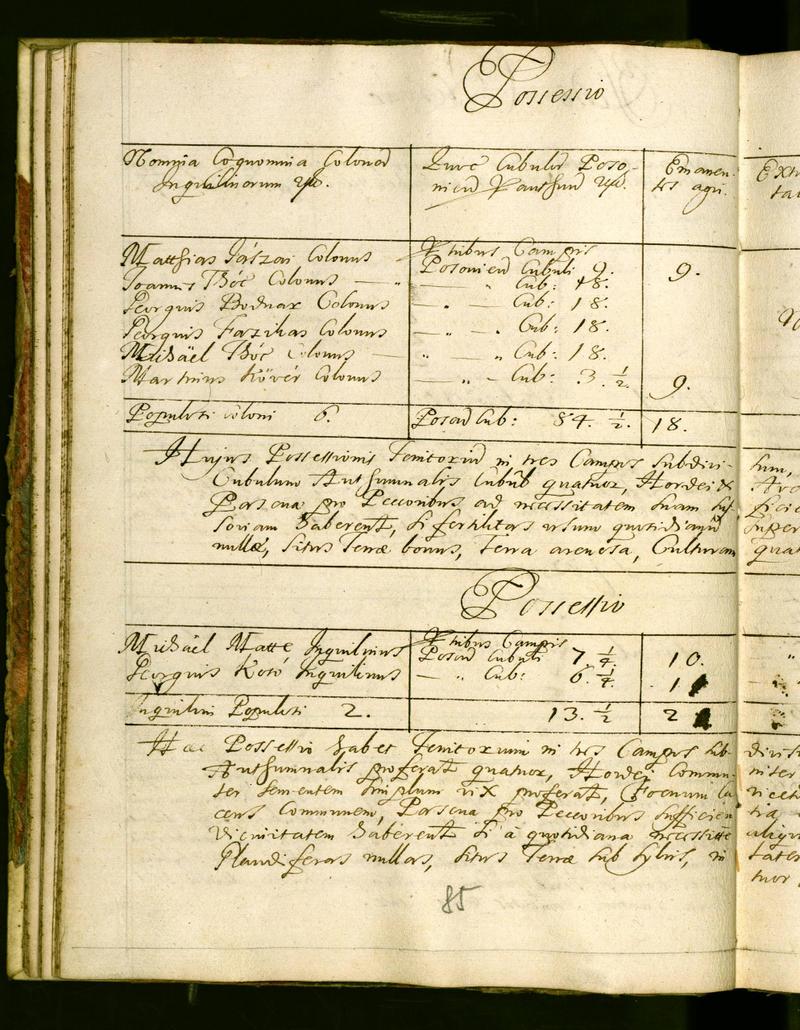 Possessio
Nomina Cognomina Colonor
Inquilinorum
Cubulis Poso-
Emanen-
tes agri.
Matthias Jászai Colonus
in tribus Campis
Posonien Cubuli 9.
9.
Joannes Bóc Colonus — „
„ Cub: 18.
Georgius Bodnar Colonus
— „ Cub: 18.
Georgius Fazikas Colonus
— „ — „ Cub: 18.
Michäel Bóc Colonus —
„ „ Cub: 18.
Martinus Kövér Colonus
— „ – Cub: 3. ½.
9.
Populosi Coloni 6.
Poson Cub: 84. ½.
18.
Hujus Possessionis Territoriu in tres Campus subdivi-
Cubulum Authumnalis Cubul quatuor, Hordei &
Pascua pro Pecoribus ad necessitatem suam suf
haberent, si fertilitas usum quotidianu
nullæ, situs Terræ bonus, Terra arenosa, Culturam
Possessio
Michäel Matte Inquilinus
in tribus Campis
Poson Cubuli 7 ¼.
10.
Georgius Kotó Inquilinus
— „ Cub: 6. ¼.
Inquilini Populosi 2.
13. ½
2
Hæc Possessio habet Territorium in tres Campus sub-
Authumnalis proferat quatuor, Hordei Commu-
ter sementem simplum vix proferat, Foenum fa
cens Communem, Pascua pro Pecoribus sufficien
Vicinitatem haberent si a quotidiana necessitte
Glandiferas nullas, situs Terræ sub sylvis, in
85